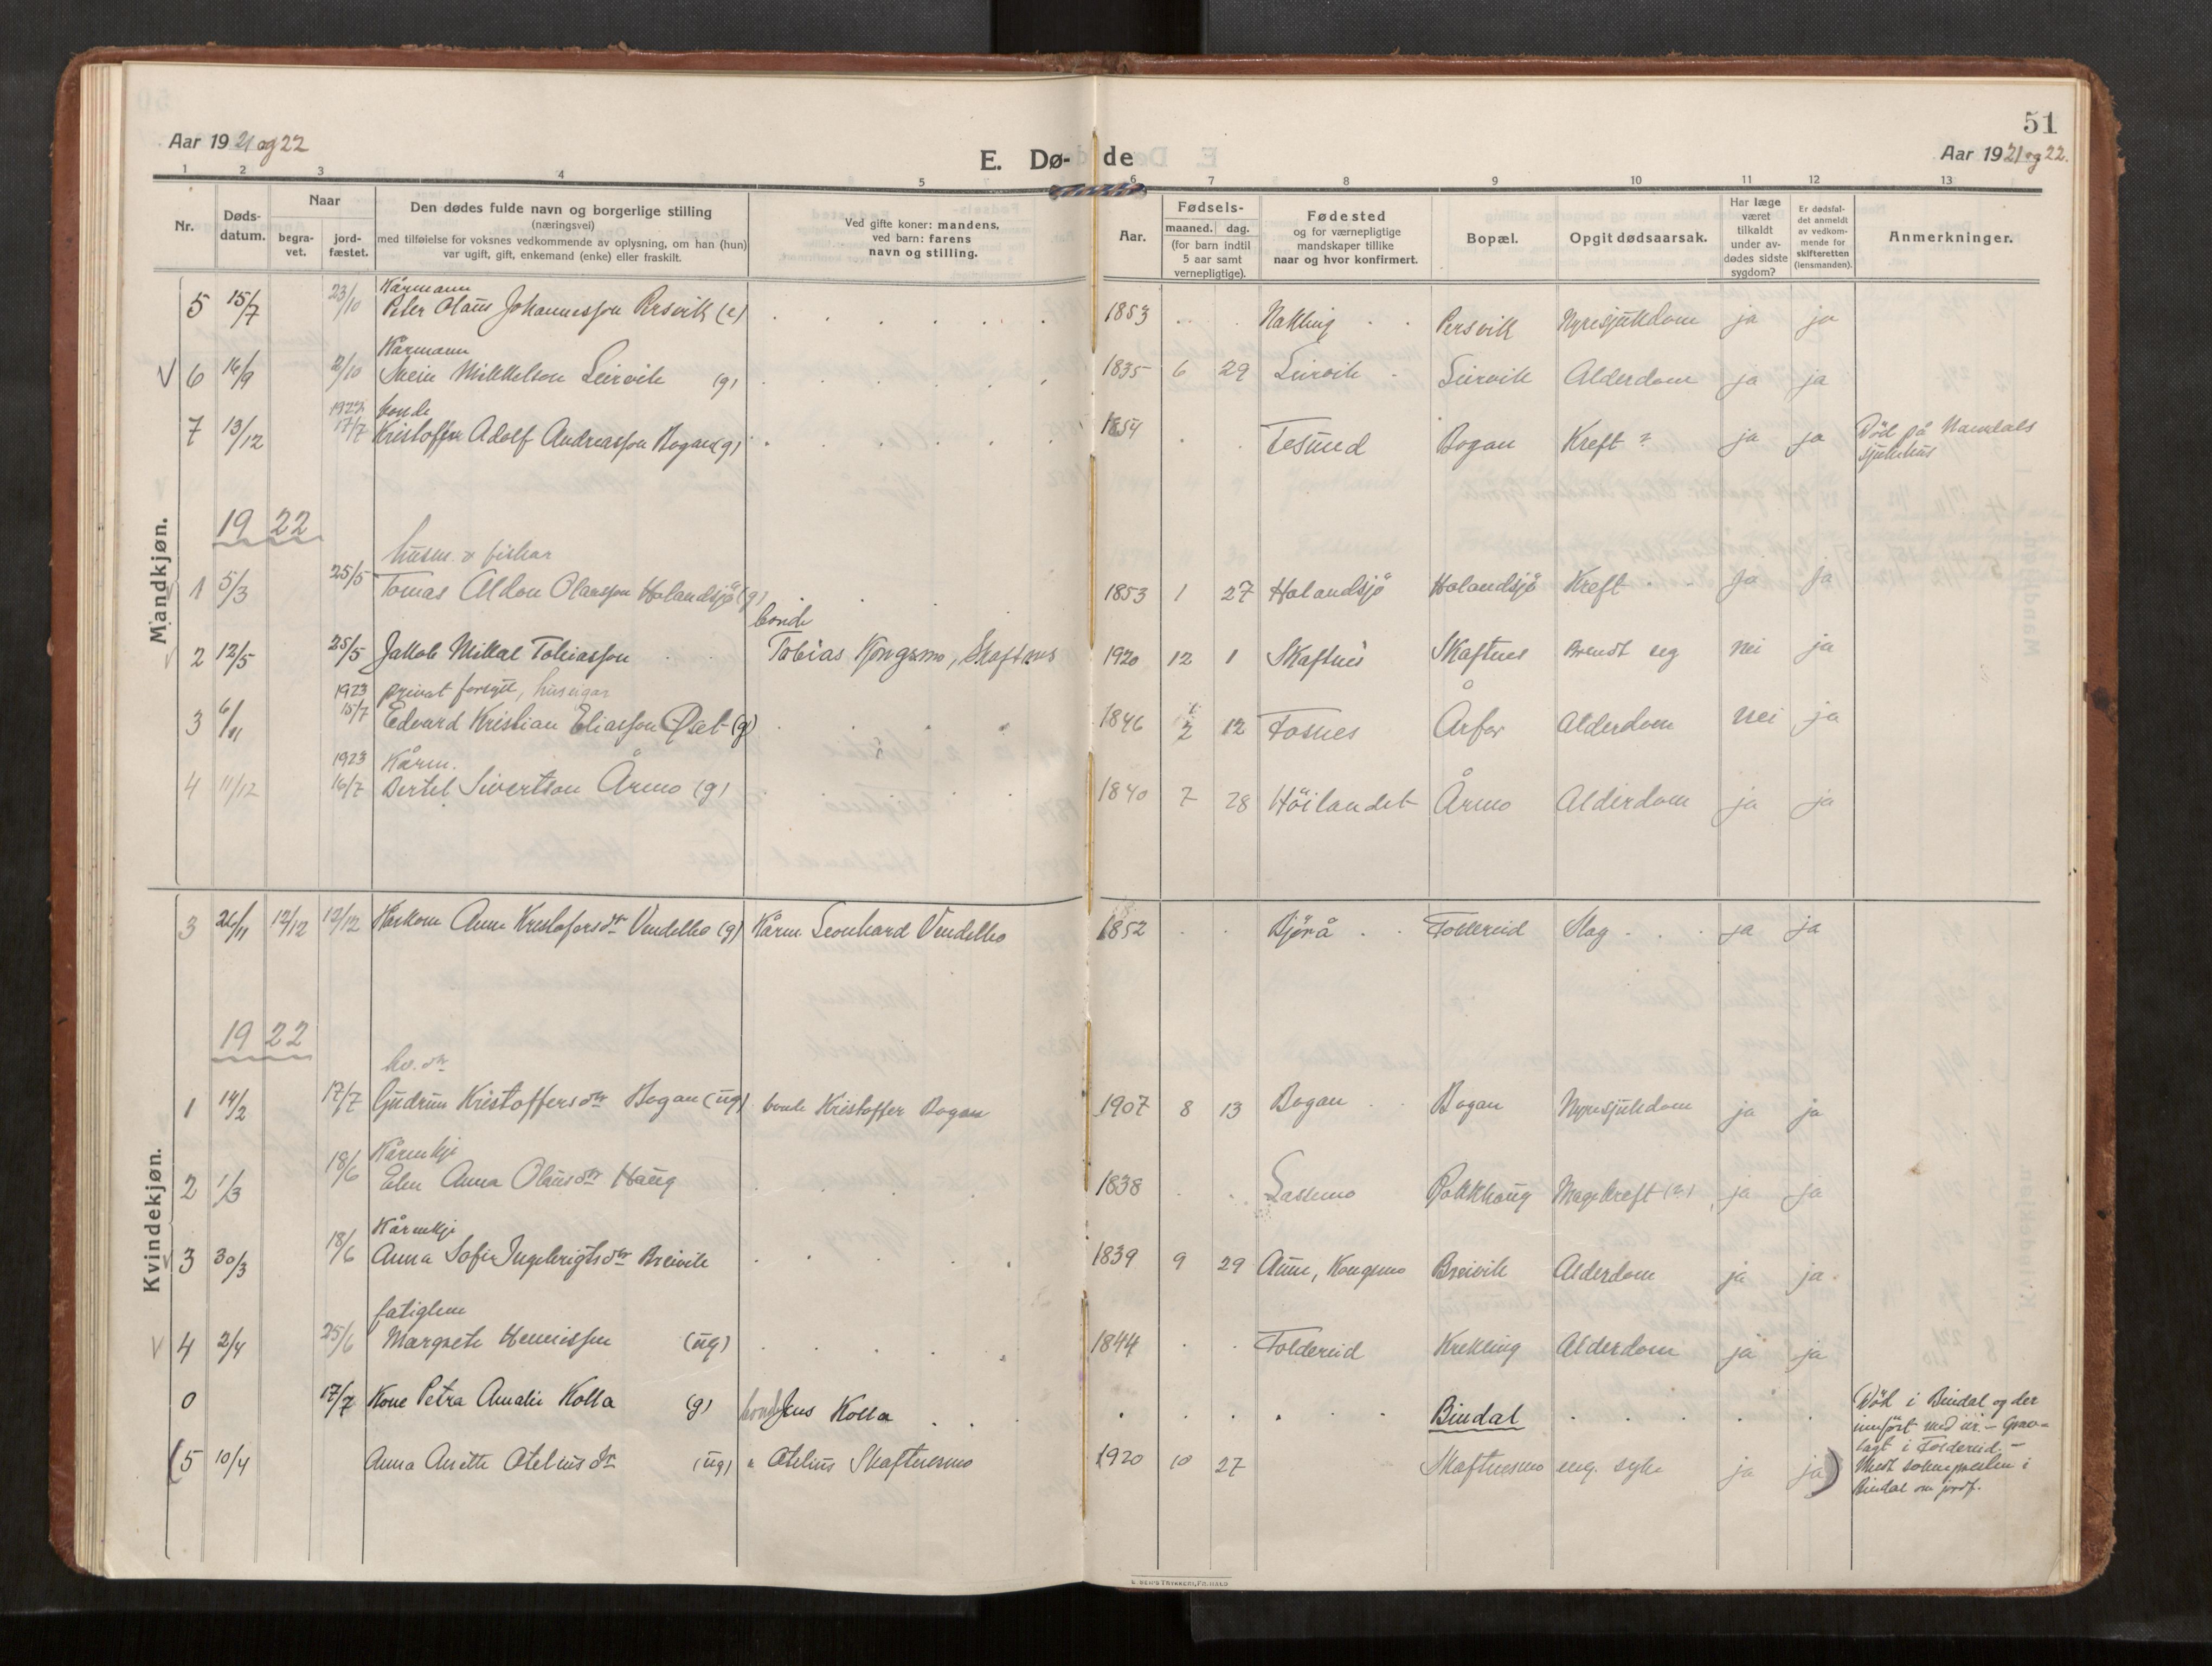 51
Aar 1921 og 22
E. Dø-de
Aar 1921 og 22.
1 2 3 4 5 6 7 8 9 10 11 12 13
Nr.
Døds-datum.
Naar
begra-vet.
jord-fæstet.
Den dødes fulde navn og borgerlige stilling
(næringsvei)
med tilføielse for voksnes vedkommende av oplysning, om han (hun)
var ugift, gift, enkemand (enke) eller fraskilt.
Ved gifte koner: mandens,
ved barn: farens
navn og stilling.
Aar.
Fødsels-
maaned. dag.
(for barn indtil
5 aar samt
vernepligtige).
Fødested
og for værnepligtige
mandskaper tillike
naar og hvor konfirmert.
Bopæl.
Opgit dødsaarsak.
Har læge
været
tilkaldt
under av-
dødes sidste
sygdom?
Er dødsfal-
det anmeldt
av vedkom-
mende for
skifteretten
(lensmanden).
Anmerkninger.
Mandkjøn.
Kårmann
5 15/7 23/10 Peter Olaus Johannesson Persvik (e) 1853 Nakling Persvik Nyresjukdom ja ja
Kårmann
V 6 16/9 2/10 Mikkelson Leirvik (g) 1835 6 29 Leirvik Leirvik Alderdom ja ja
1922 bonde
7 13/12 17/7 Kristoffer Adolf Andreasson Bogan (g) 1854 Bogan Kreft ? ja ja Död på Namdals
sjukehus
1922
husm. & fiskar
1 5/3 25/5 Tomas Aldon Olausson Holandsjö (g) 1853 1 27 Holandsjö Holandsjö Kreft ja ja
bonde
2 12/5 25/5 Jakob Mikal Tobiasson Tobias Kongsmo, Skaftnes 1920 12 1 Skaftnes Skaftnes Brendt seg nei ja
1923 privat forsyt, huseigar
3 6/11 15/7 Edvard Kristian Eliasson Øset (g) 2 12 1846 Fosnes Årfor Alderdom nei ja
1923 Kårm.
4 11/12 16/7 Bertel Sivertson Årmo (g) 1840 7 28 Höilandet Årmo Alderdom ja ja
Kvindekjøn.
3 26/11 12/12 12/12 Anna Kristofersdtr Vendelbo (g) Kårm Leonhard Vendelbo 1852 Bjørå Foldereid Slag ja ja
1922
1 14/2 17/7 Gudrun Kristoffersdtr Bogan (ug) bonde Kristoffer Bogan 1907 8 13 Bogan Bogan Nyresjukdom ja ja
Kårmkje
2 1/3 18/6 Elen Anna Olausdtr Haug 1838 Lassemo Magekreft (?) ja ja
Kårmkje
V 3 30/3 18/6 Anna Sofie Ingebrigtsdtr Breivik 1839 9 29 Aune, Kongsmo Breivik Alderdom ja ja
fatiglem
V 4 2/4 25/6 Margrete Hennissen (ug) 1844 Foldereid Krekling Alderdom ja ja
0 17/7 Kone Petra Amalie Kolla (g) bonde Jens Kolla Bindal Död i Bindal og der
innfört med nr. – Grav-
lagt i Foldereid. –
i
Bindal om jordf.
(5 10/4 Anna Anette Oteliusdtr (ug) " Otelius Skaftnesmo 1920 10 27 Skaftnesmo eng. syke ja ja)